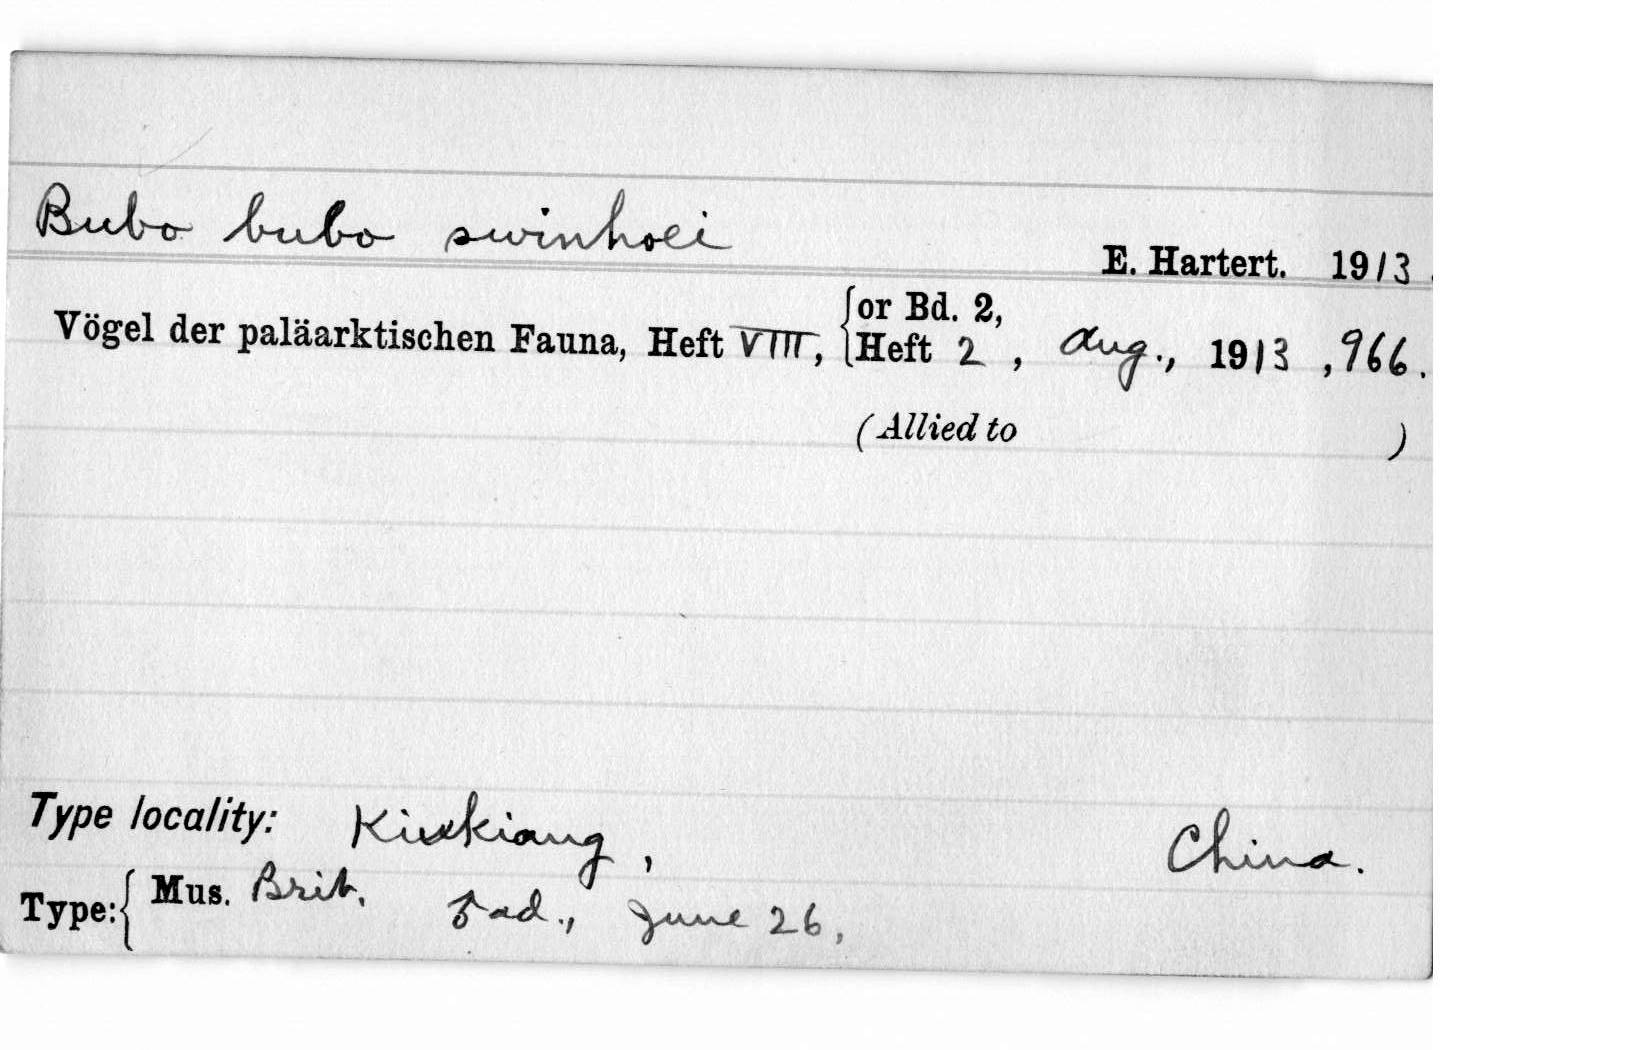 Bubo bubo swinhoei
E. Hartert. 1913.
Vögel der paläarktischen Fauna, Heft VIII, {or Bd. 2, Heft 2, Aug., 1913, 966.
(Allied to )
Type locality: Kiukiang, China.
Type: { Mus. Brit. ♂ ad., June 26,